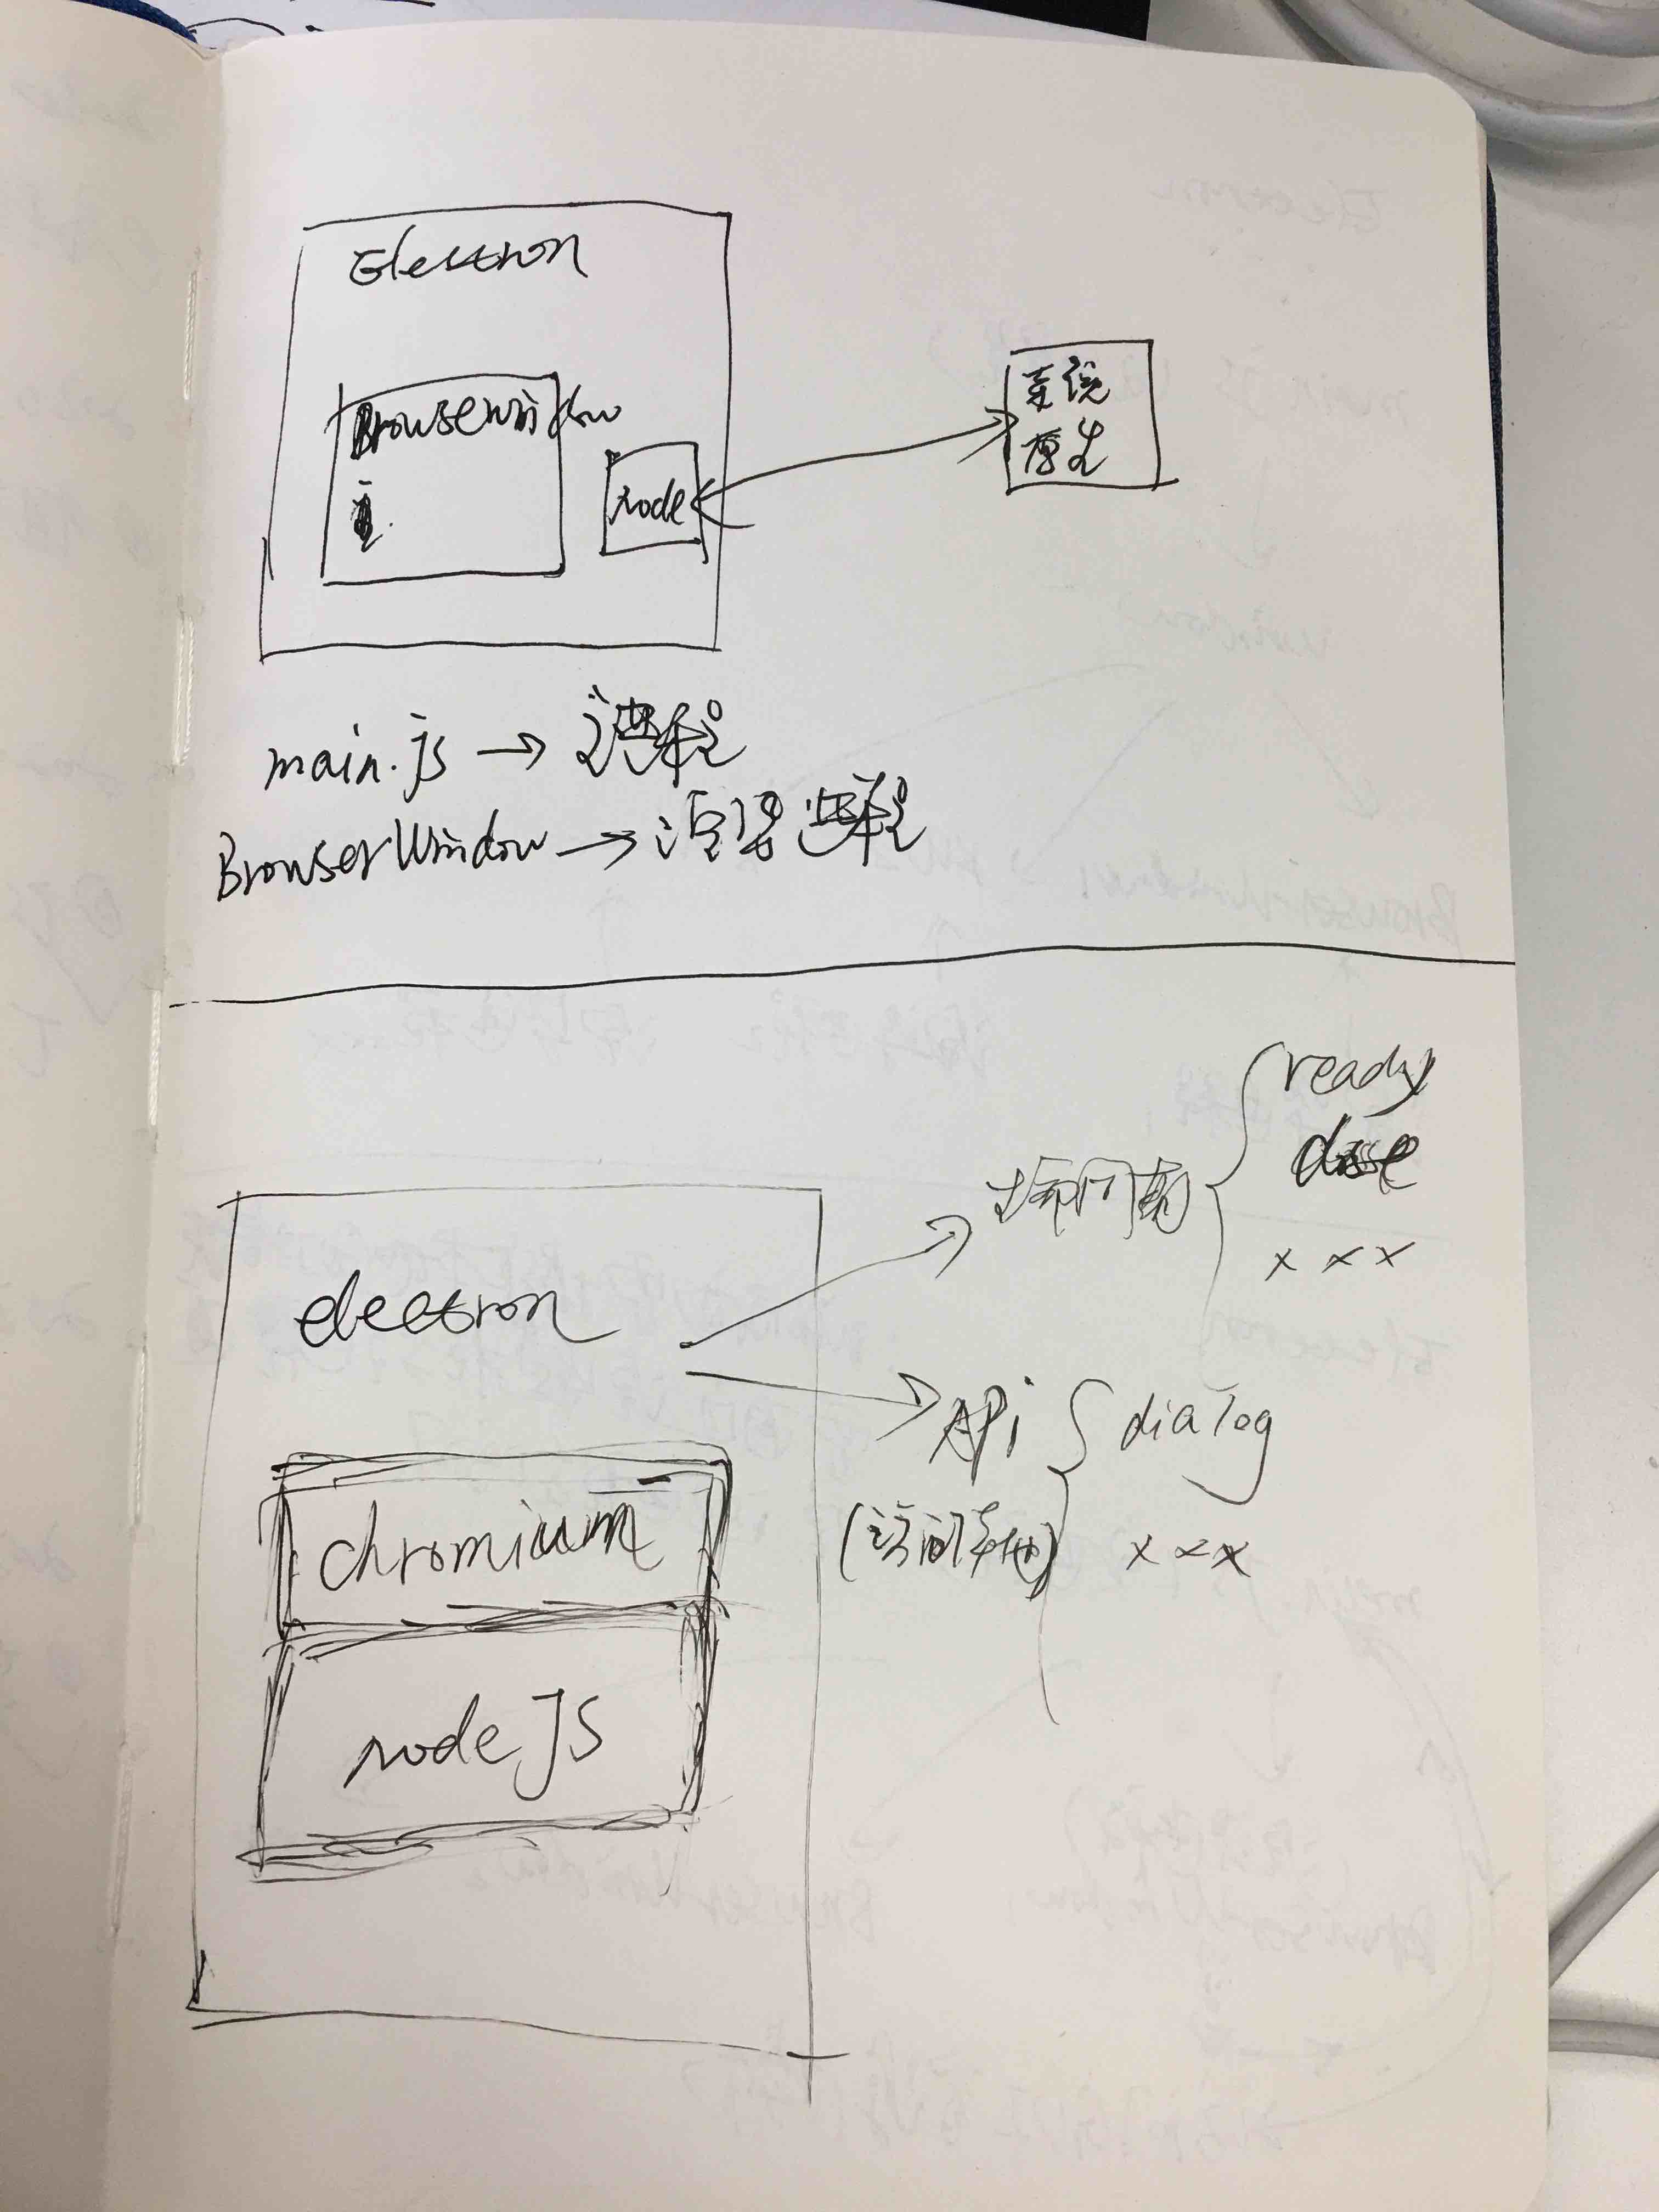 Electron
BrowserWindow
node
系统
原生
main.js → 主进程
BrowserWindow → 渲染进程
electron
chromium
node JS
生命周期
ready
close
× × ×
API
(访问系统)
dialog
× × ×